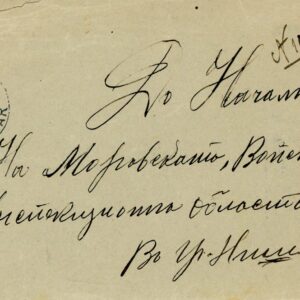 До Начал
На Моравската, Воен
инспекционна область
Въ гр. Ниш